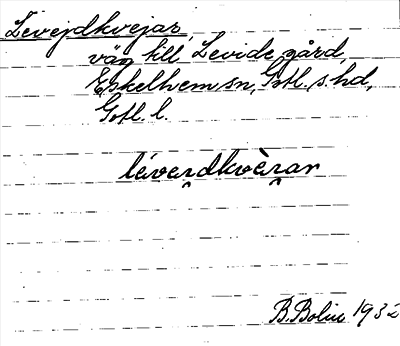 Levejdkvejar,
väg till Levide gård,
Eskelhem sn, Gotl. s. hd,
Gotl. l.
léveɪ̯dkvèɪ̯ar
B. Bolin 1932